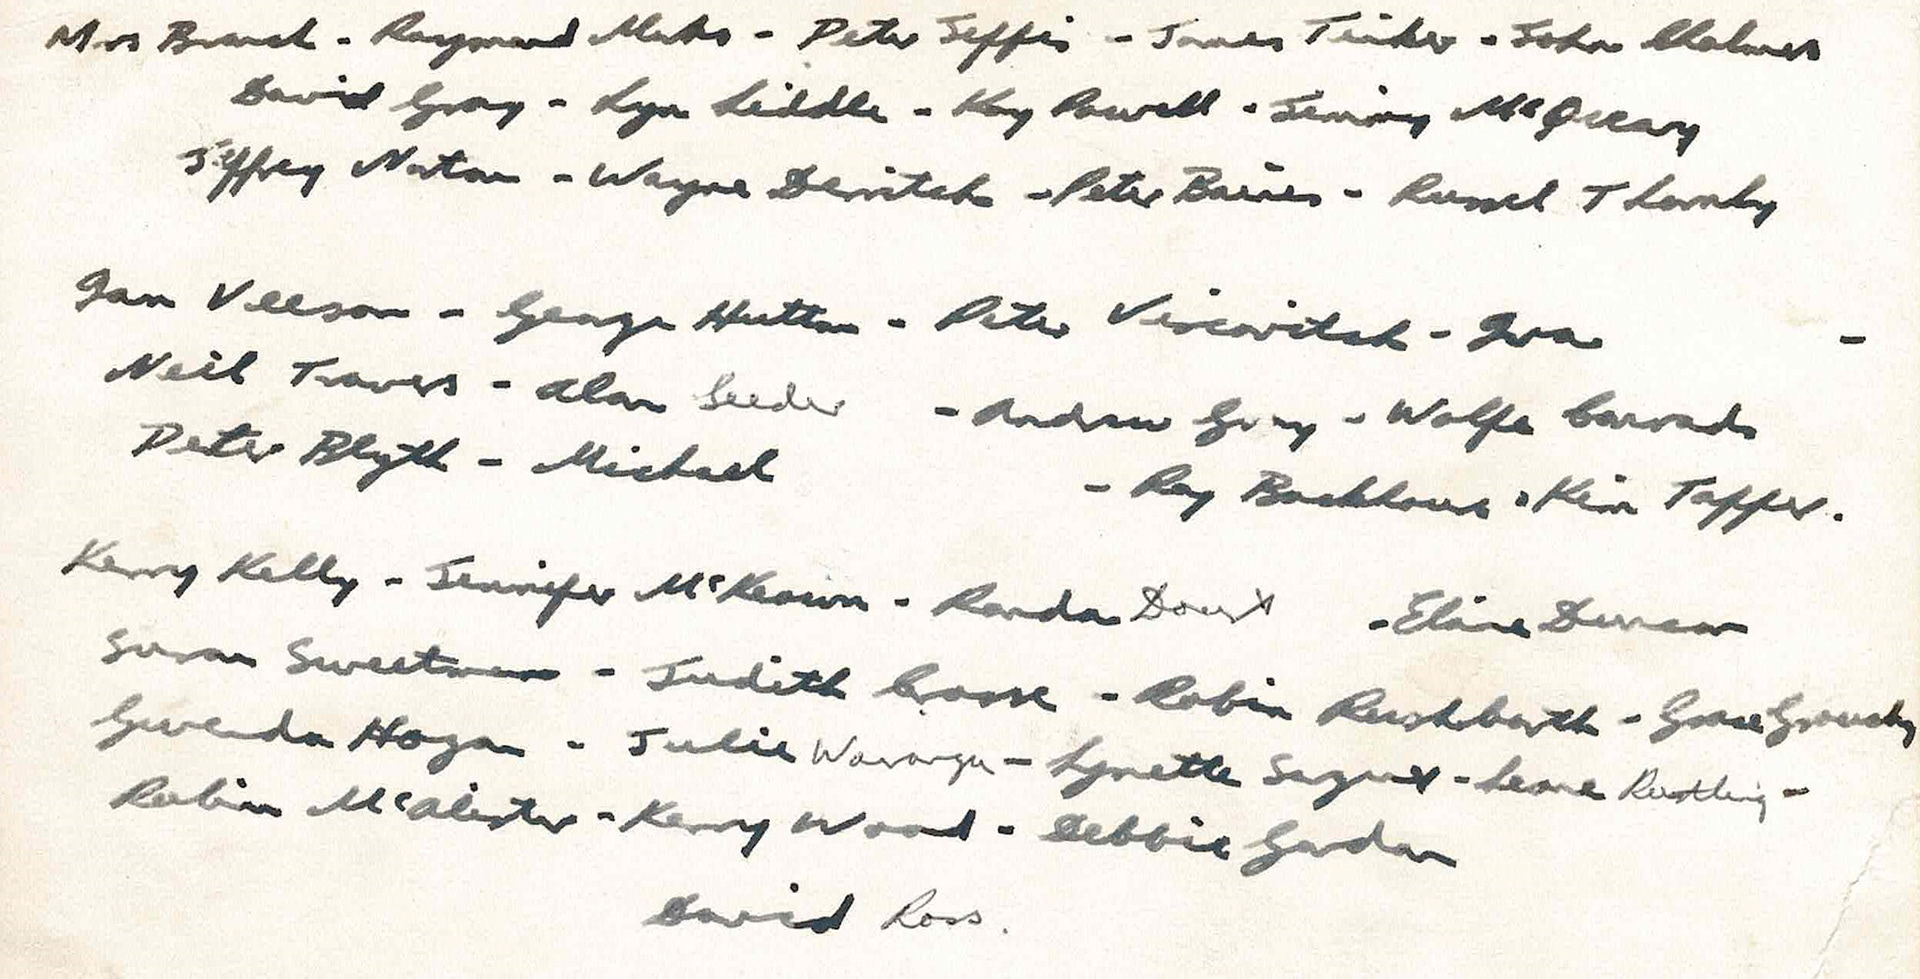 Mrs Branch - Raymond Maks - Peter Jeffis - James Tinker - John Chalmers
David Gray - Lyn Liddle - Kay Powell - Jenny McQueary
Jeffrey Norton - Wayne - Peter Baines - Russel Thornby
Jan Veeson - George Hutton - Peter Viscovitch - Iva -
Neil Travers - Alan Leeder - Andrew Gray - Wolfe
Peter Blyth - Michael - Ray Backhouse - Kim Tapper.
Kerry Kelly - Jennifer McKeown - Randa - Elaine
Susan Sweetman - Judith Crosse - Robin Rushbarth - Grace
Gwenda Hogan - Julie - Lynette - Leone -
Robin McAlister - Kerry Wood - Debbie Gordan
David Ross.